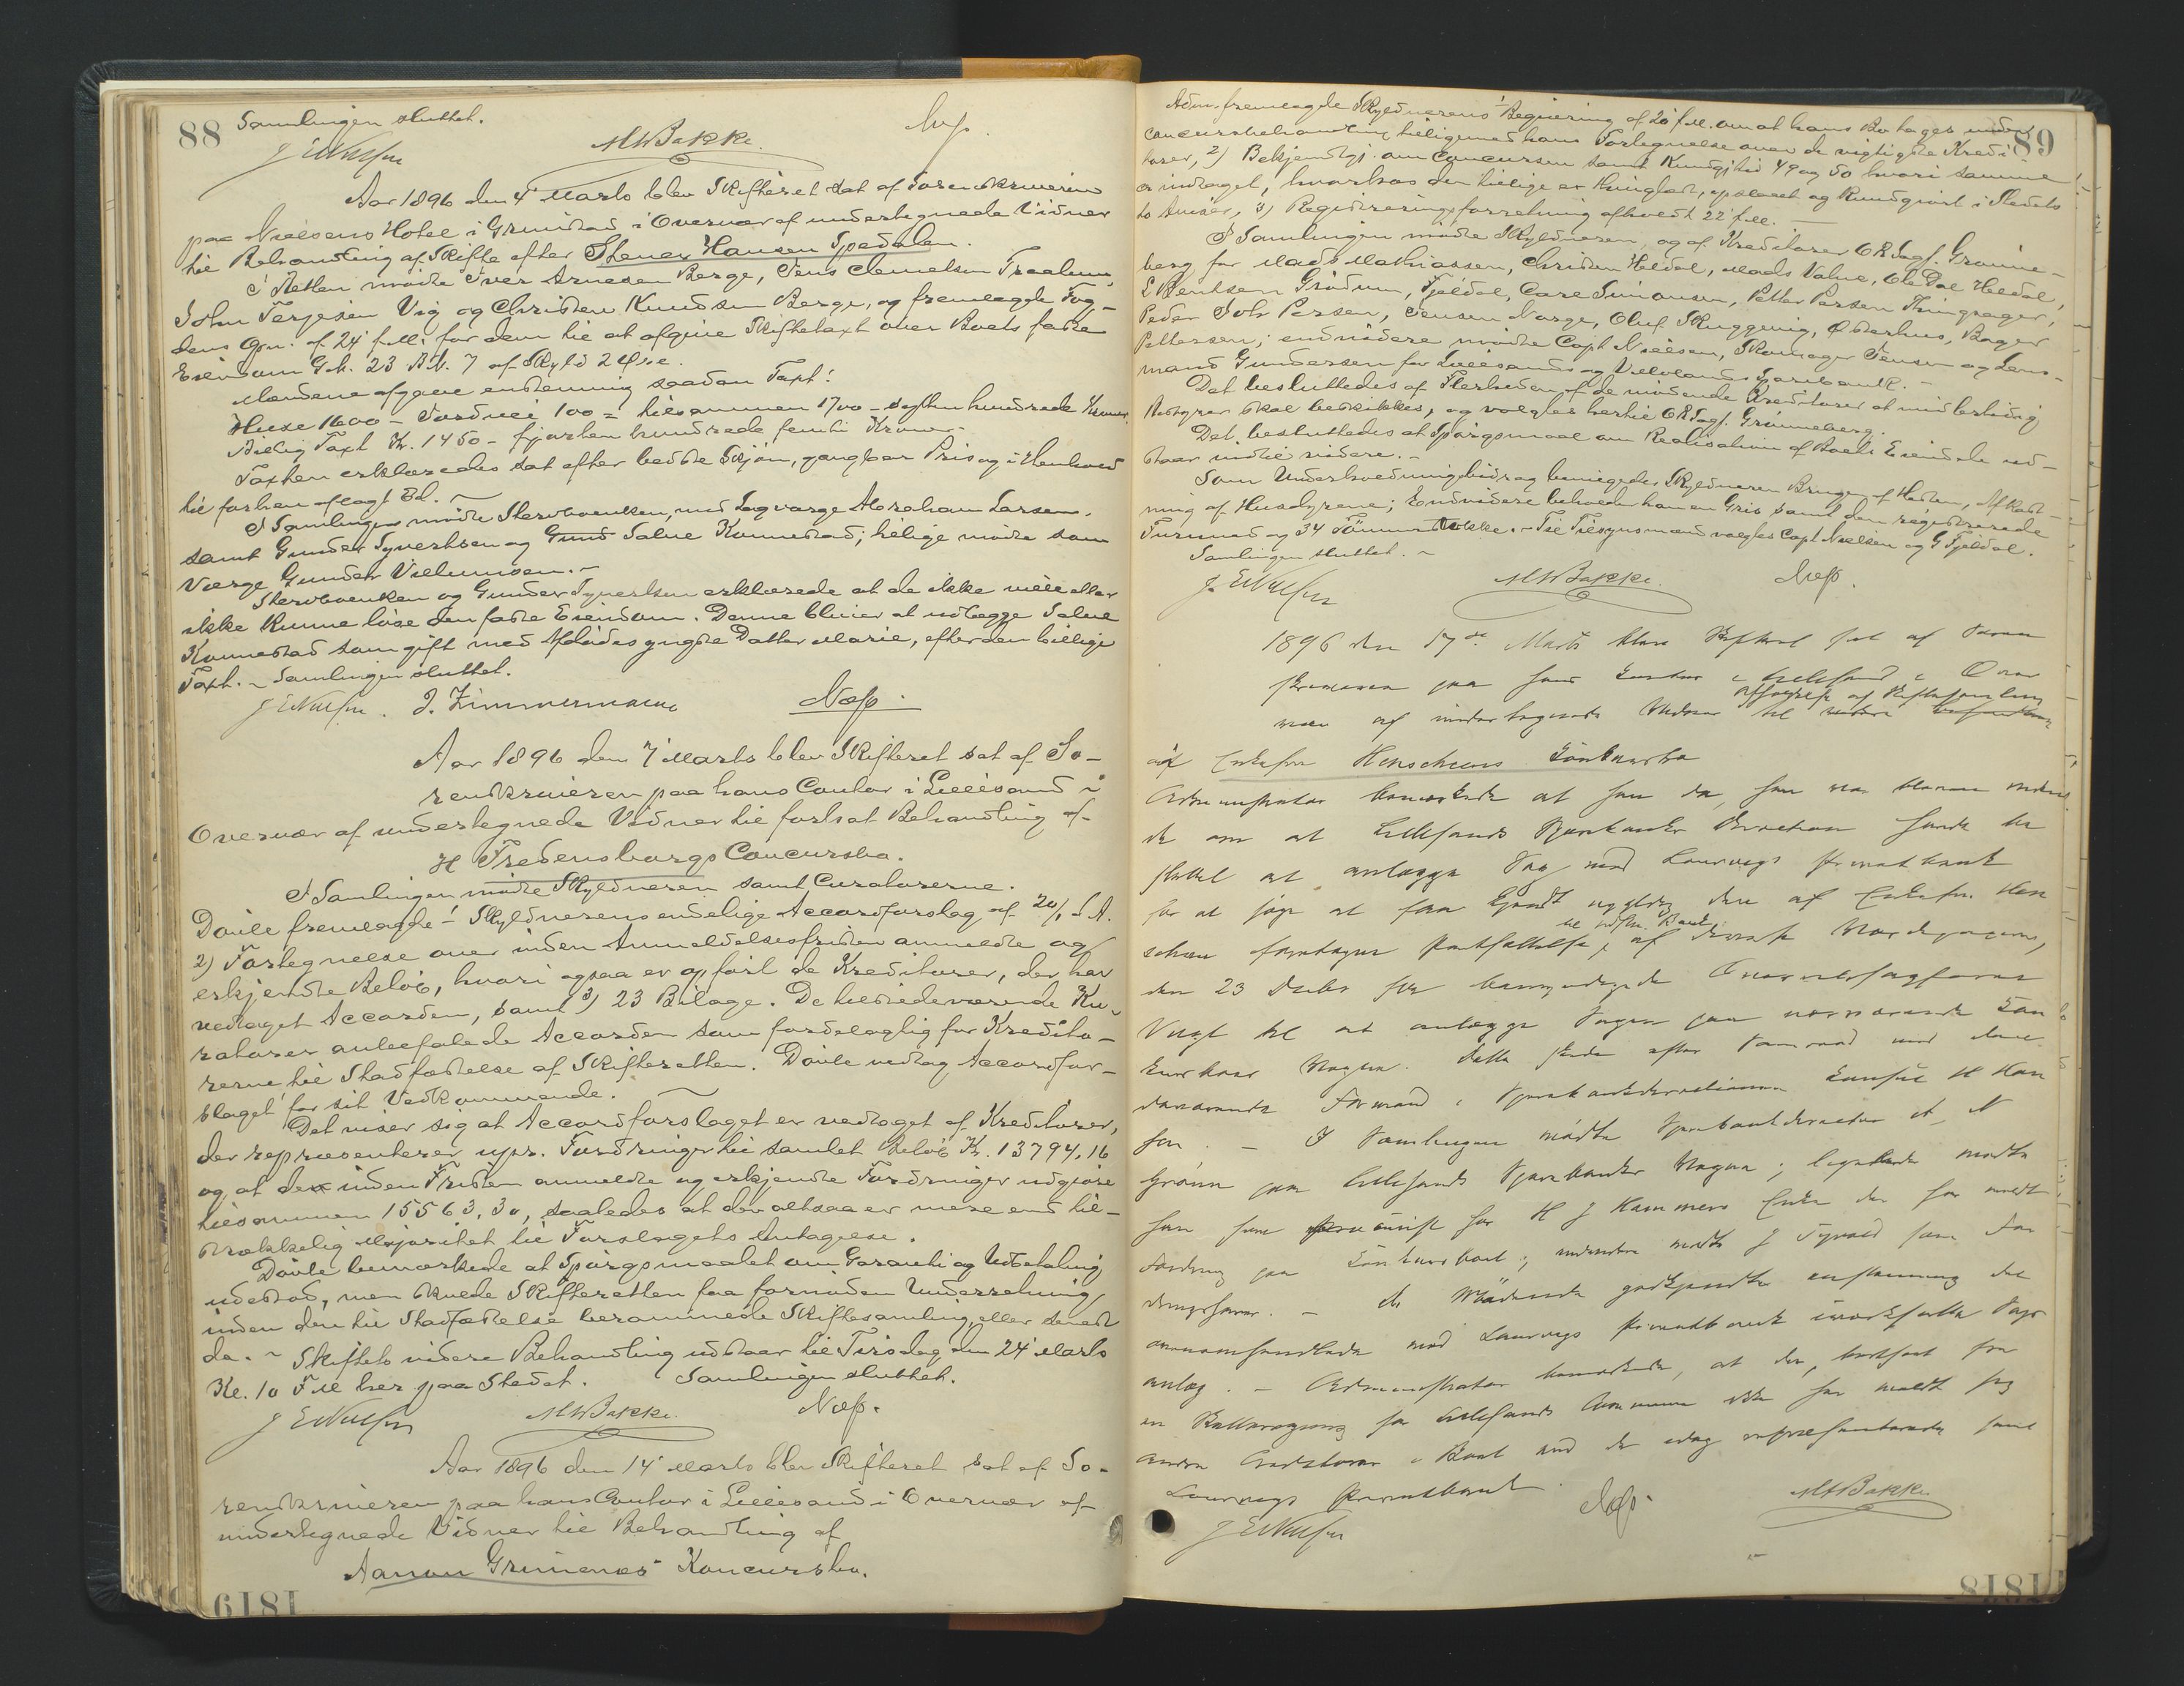 88 Samlingen sluttet.
J E Nielsen MWBakke. Næss.
Aar 1896 den 4' Marts blev Skifteret sat af Sorenskriveren
paa Nielsens Hotel i Grimstad i Overvær af undertegnede Vidner
til Behandling af Skifte efter Stener Hansen Spedalen.
I Retten mødte Iver Arnesen Berge, Jens Clemetsen Traalum,
John Terjesen Vig og Christen Knudsen Berge, og fremlagde Fog-
dens Opn. af 24' f. M. for dem til at afgive Skiftetaxt over Boets faste
Eiendom G.N. 23 B.N. 7 af Skyld 2
Mændene afgave enstemmig saadan Taxt:
Huse 1600 – Jordvei 100 = tilsammen 1700 – sytten hundrede Kroner.
Billig Taxt Kr. 1450 – fjorten hundrede femti Kroner –
Taxten erklæredes sat efter bedste Skjøn, gangbar Pris og i Henhold
til forhen aflagt Ed. –
I Samlingen mødte Stervboenken, med Lagværge Abraham Larsen.
samt Gunder Syvertsen og Gund Salve Konnestad; tillige mødte som
Værge Gunder Villumsen. –
Stervboenken og Gunder Syvertsen erklærede at de ikke ville eller
ikke kunne løse den faste Eiendom. Denne bliver at udlægge Salve
Konnestad som gift med Afdødes yngste Datter Marie, efter den billige
Taxt. – Samlingen sluttet.
J E Nielsen. J. Zimmermann Næss.
Aar 1896 den 7' Marts blev Skifteret sat af So-
renskriveren paa hans Contor i Lillesand i
Overvær af undertegnede Vidner til fortsat Behandling af
H Fredensborgs Concursbo.
I Samlingen mødte Skyldneren samt Curatorerne.
Døvle fremlagde 1 Skyldnerens endelige Accordforslag af 20/1 d. A.
2) Fortegnelse over inden Anmeldelsesfristen anmeldte og
erkjendte Beløb, hvori ogsaa er opført de Kreditorer, der har
vedtaget Accorden, samt 3) 23 Bilage. De tilstedeværende Ku-
ratorer anbefalede Accorden som fordelagtig for Kredito-
rerne til Stadfæstelse af Skifteretten. Døvle vedtog Accordfor-
slaget for sit Vedkommende.
Det viser sig at Accordforslaget er vedtaget af Kreditorer,
der repræsenterer upr. Fordringer til samlet Beløb Kr. 13794,16
og at de inden Fristen anmeldte og erkjendte Fordringer udgjøre
tilsammen 15563,30, saaledes at der altsaa er mere end til-
strækkelig Majoritet til Forslagets Antagelse.
Døvle bemærkede at Spørgsmaalet om Garanti og Udbetaling
udestod, men skulde Skifteretten faa fornøden Underretning
inden den til Stadfæstelse berammede Skiftesamling, eller senest
da. – Skiftets videre Behandling udstaar til Tirsdag den 24' Marts
Kl. 10 FM her paa Stedet. Samlingen sluttet.
J E Nielsen MWBakke. Næss.
Aar 1896 den 14' Marts blev Skifteret sat af So-
renskriveren paa hans Contor i Lillesand i Overvær af
undertegnede Vidner til Behandling af
Aanon Grimenæs Koncursbo.
1819
89
Adm. fremlagde Skyldnerens 1 Begjæring af 20 f. M. om at hans Bo tages under
Concursbehandling tilligemed hans Fortegnelse over de vigtigste Kredi-
torer, 2) Bekjendtgj. om Concursen samt Kundgjtid 49 og 50 hvori samme
er indtaget, hvorhos den tillige er thinglæst, opslaaet og kundgjort i Stedets
to Aviser, 3) Registreringsforretning afholdt 22 f. M. –
I Samlingen mødte Skyldneren, og af Kreditorer OR Sagf. Grønne-
berg for Mads Mathiassen, Christen Heldal, Mads Valne, Ole Dal Heldal,
L Bentsen Grødum, Fjeldal, Carl Simonsen, Petter Persen Thingsager,
Peder Joh Persen, Jensen Norge, Oluf Skuggevig, Østerhus, Bager
Pettersen; endvidere mødte Capt Nielsen, Skomager Jensen og Lens-
mand Gundersen for Lillesands og Vestlands Sparebank. –
Det besluttedes af Flerheden af de mødende Kreditorer at midlertidig
Bestyrer skal beskikkes, og valgtes hertil OR Sagf. Grønneberg.
Det besluttedes at Spørgsmaal om Realisation af Boets Eiendele ud-
staar indtil videre. –
Som Underholdningsbidrag bevilgedes Skyldneren Brugen af Heden, Afkast-
ning af Husdyrene; Endvidere beholder han en Gris samt den registrerede
Furuved og 34 Tømmerstokke. – Til Tilsynsmænd valgtes Capt Nielsen og G Fjeldal.
Samlingen sluttet. –
J. E Nielsen MWBakke. Næss.
1896 den 17de Marts blev Skifteret sat af Soren
skriveren paa hans Contor i Lillesand i Over
vær af undertegnede Vidner til afholdelse af Skiftesamling
af Enkefru Henschiens Konkursbo
Administrator bemærkede at han da, han var bleven vidende
de om at Lillesands Sparebanks Direction havde be
sluttet at anlægge Sag mod Laurvigs Privatbank
for at søge at faa kjendt ugyldig den af Enkefru Hen
schien foretagne Pantsættelse til nysn. Bank af
den 23 Decbr
Vogt til at anlægge Sagen paa nærværende Kon
kursboes Vegne. Dette skede efter Samraad med den
daværende Formand i Sparebankdirectionen Konsul H Han
sen. – I Samlingen mødte Sparebankdirecteur
Grønn paa Lillesands Sparebanks Vegne; ligeledes mødte
han som for H J Hammers Enke der har anmeldt
Fordring paa Konkursboet; endvidere mødte J Tynæs som For
dringshaver. – De Mødende godkjendte enstemmig det
ovenomhandlede mod Laurvigs Privatbank iværksatte Sags
anlæg. – Administrator bemærkede, at der, bortseet fra
en for Lillesands Kommune ikke har meldt sig
andre Creditorer i Boet end de idag repræsenterede samt
Laurvigs Privatbank.
J E Nielsen Næss. MWBakke
1818